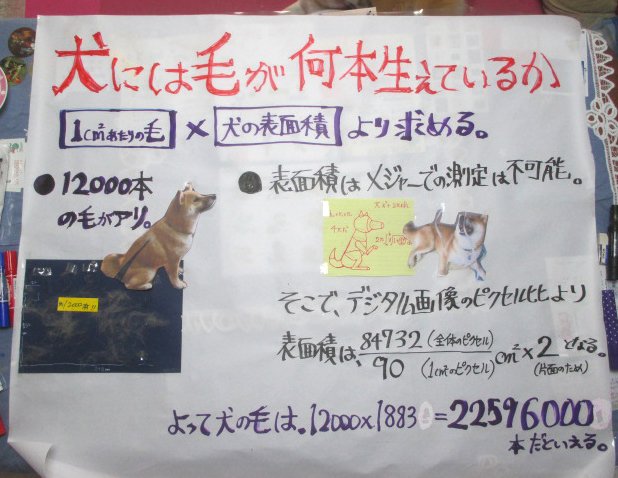 犬には毛が何本生えているか
1cm²あたりの毛 × 犬の表面積 より求める。
●12000本
の毛がアリ。
●表面積はメジャーでの測定は不可能。
約12000本!!
そこで、デジタル画像のピクセル比より
表面積は、84732(全体のピクセル)/90(1cm²のピクセル) cm²×2(片面のため)となる。
よって犬の毛は、12000×1883=22596000
本だといえる。